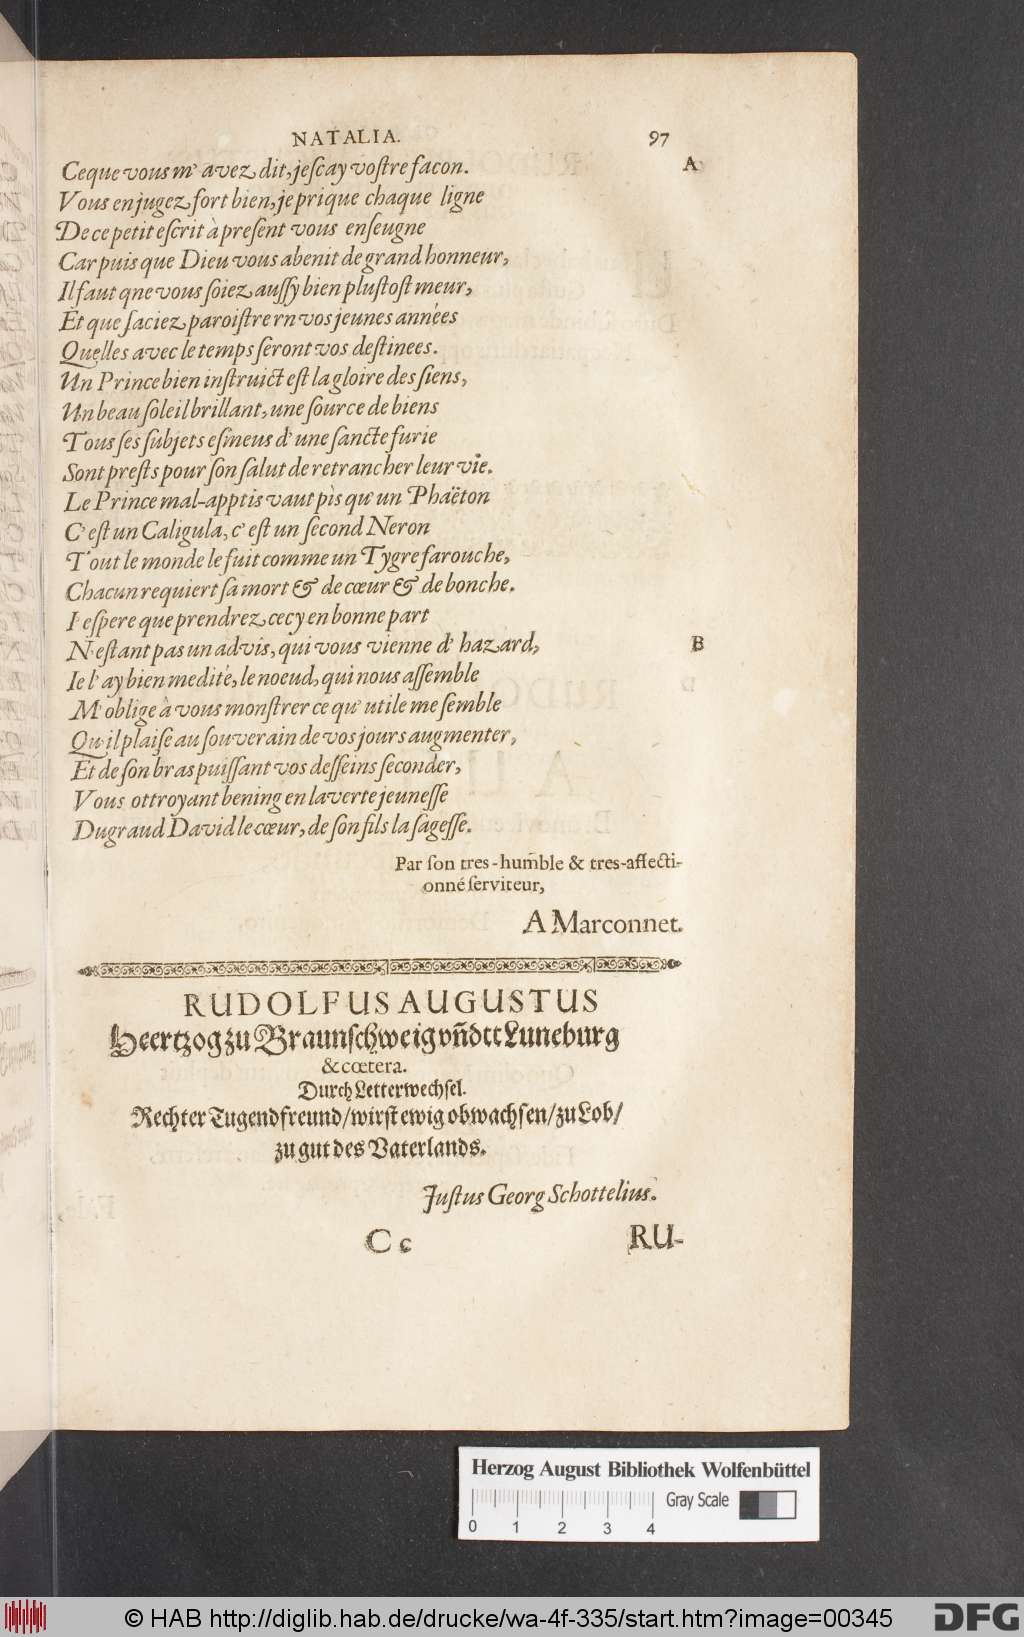 NATALIA. 97
A
Ceque vous m' avez dit, jeſcay voſtre facon.
Vous en jugez fort bien, je prique chaque ligne
De ce petit eſcrit à preſent vous enſeugne
Car puis que Dieu vous abenit de grand honneur,
Il faut qne vous ſoiez auſſy bien pluſtoſt meur,
Et que faciez paroiſtre rn vos jeunes années
Quelles avec le temps ſeront vos deſtinees.
Un Prince bien inſtruict eſt la gloire des ſiens,
Un beau ſoleil brillant, une ſource de biens
Tous ſes ſubjets eſmeus d' une ſancte furie
Sont preſts pour ſon ſalut de retrancher leur vie.
Le Prince mal-apptis vaut pìs qu' un Phaëton
C' eſt un Caligula, c' eſt un ſecond Neron
Tout le monde le fuit comme un Tygre farouche,
Chacun requiert ſa mort & de cœur & de bonche.
I' eſpere que prendrez cecy en bonne part
N' eſtant pas un advis, qui vous vienne d' hazard,
B
Ie l' ay bien medité, le noeud, qui nous aſſemble
M' oblige à vous monſtrer ce qu' utile me ſemble
Qu' il plaiſe au ſouverain de vos jours augmenter,
Et de ſon bras puiſſant vos deſſeins ſeconder,
Vous ottroyant bening en la verte jeuneſſe
Du graud David le cœur, de ſon fils la ſageſſe.
Par ſon tres-hum̄ble & tres-affecti-
onné ſerviteur,
A Marconnet.
RUDOLFUS AUGUSTUS
Heertzog zu Braunſchweig vn̄dtt Luneburg
& cœtera.
Durch Letterwechſel.
Rechter Tugendfreund/wirſt ewig obwachſen/zu Lob/
zu gut des Vaterlands.
Juſtus Georg Schottelius.
C c RU-
Herzog August Bibliothek Wolfenbüttel
Gray Scale
0 1 2 3 4
© HAB http://diglib.hab.de/drucke/wa-4f-335/start.htm?image=00345
DFG